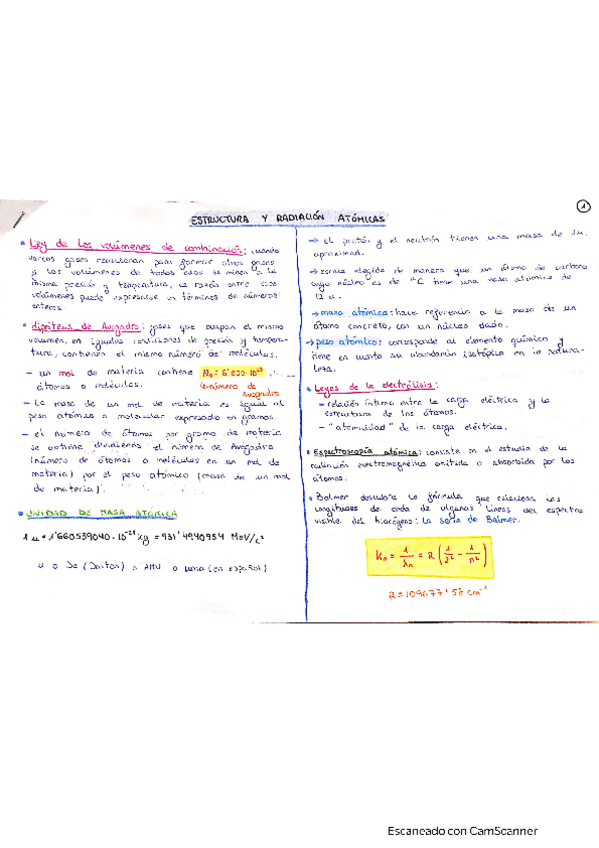 1
ESTRUCTURA Y RADIACIÓN ATÓMICAS
• Ley de los volúmenes de combinación: cuando
varios gases reaccionan para formar otros gases
y los volúmenes de todos ellos se miden a la
misma presión y temperatura, la razón entre esos
volúmenes puede expresarse en términos de números
enteros.
• Hipótesis de Avogadro: gases que ocupan el mismo
volumen, en iguales condiciones de presión y tempera-
tura, contienen el mismo número de moléculas.
- un mol de materia contiene N₀ = 6'022·10²³
átomos o moléculas.
número de
Avogadro
- La masa de un mol de materia es igual al
peso atómico o molecular expresado en gramos.
- el número de átomos por gramo de materia
se obtiene dividiendo el número de Avogadro
(número de átomos o moléculas en un mol de
materia) por el peso atómico (masa de un mol
de materia).
• UNIDAD DE MASA ATÓMICA
1 u = 1'660539040·10⁻²⁷ kg = 931'4940954 MeV/c²
u o Da (Dalton) o AMU o uma (en español)
→ el protón y el neutrón tienen una masa de 1u,
aproximad.
→ escala elegida de manera que un átomo de carbono
cuyo núcleo es de ¹²C tiene una masa atómica de
12 u.
→ masa atómica: hace referencia a la masa de un
átomo concreto, con un núcleo dado.
→ peso atómico: corresponde al elemento químico y
tiene en cuenta su abundancia isotópica en la natura-
leza.
• Leyes de la electrólisis:
- relación íntima entre la carga eléctrica y la
estructura de los átomos.
- "atomicidad" de la carga eléctrica.
• Espectroscopía atómica: consiste en el estudio de la
radiación electromagnética emitida o absorbida por los
átomos.
• Balmer descubre la fórmula que relaciona las
longitudes de onda de algunas líneas del espectro
visible del hidrógeno: la serie de Balmer.
Kₙ = 1/λₙ = R (1/2² - 1/n²)
R = 109677'58 cm⁻¹
Escaneado con CamScanner